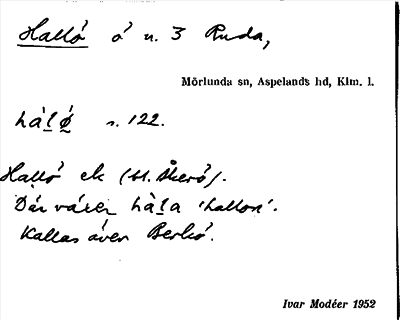 Hallö ö n. 3 Ruda,
Mörlunda sn, Aspelands hd, Klm. l.
hàlǿ s. 122.
Hallö ek (bl. Åkerö).
Där växer hàla 'hallon'.
Kallas även Berkö.
Ivar Modéer 1952